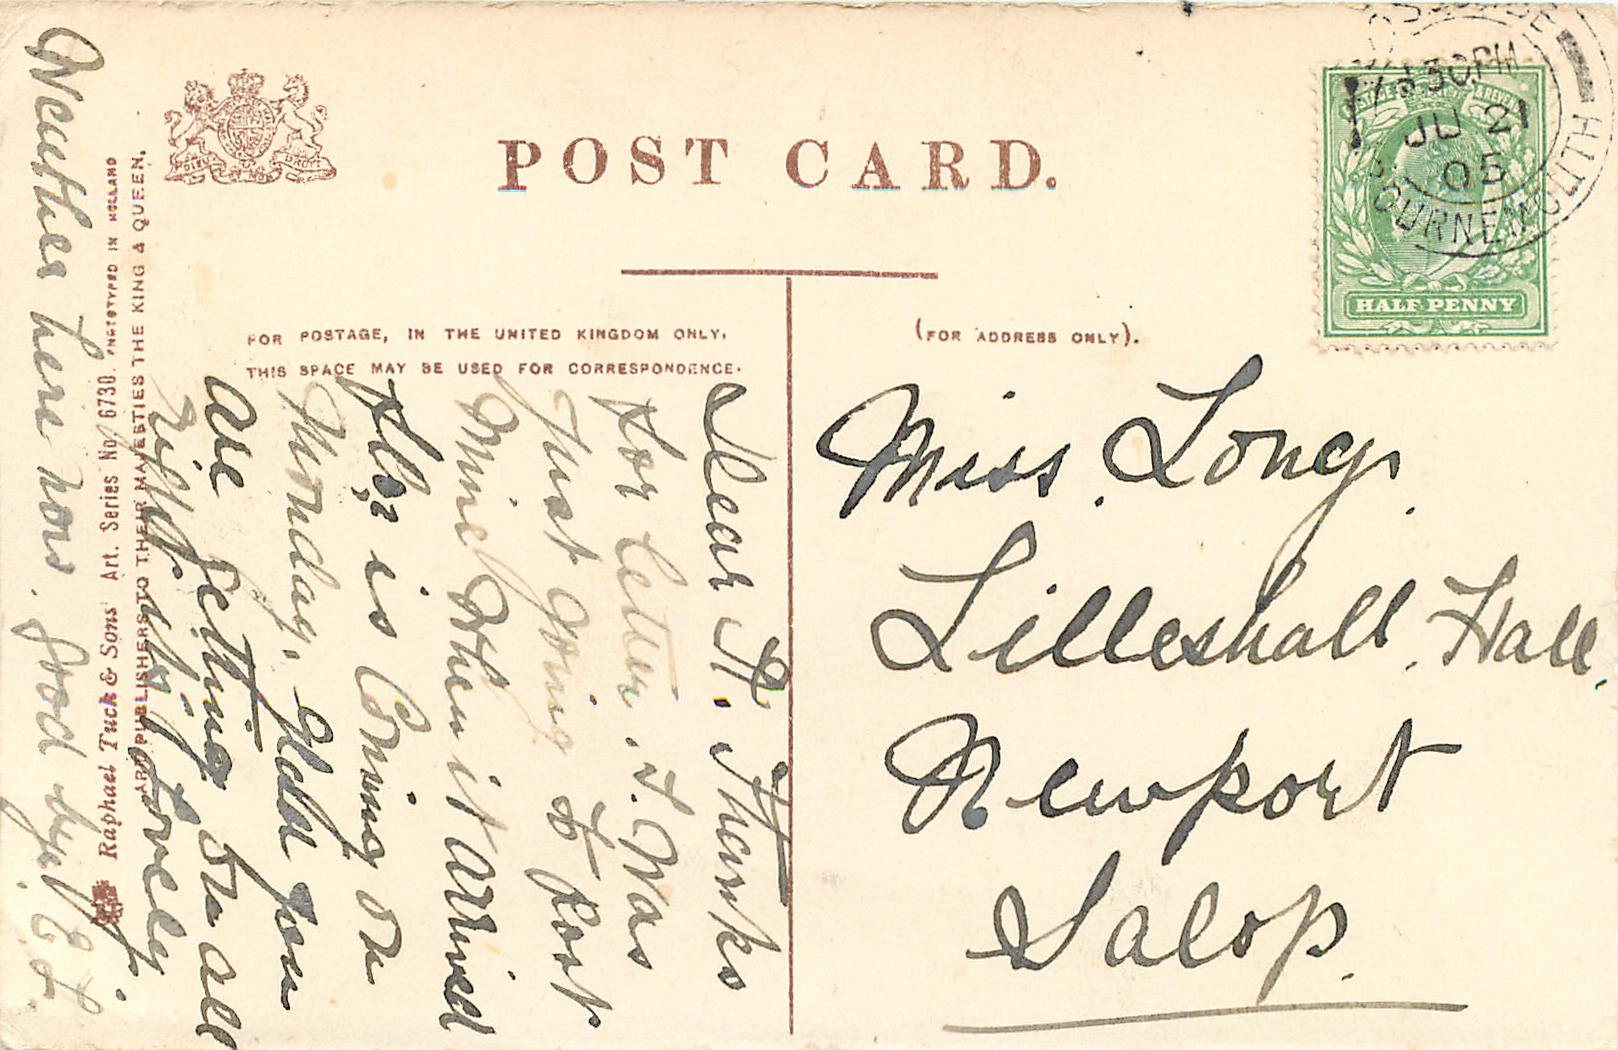 POST CARD.
FOR POSTAGE, IN THE UNITED KINGDOM ONLY,
THIS SPACE MAY BE USED FOR CORRESPONDENCE.
(FOR ADDRESS ONLY).
30PM
JU 21
05
BOURNEMOUTH
POSTAGE & REVENUE
HALF PENNY
Dear A. Thanks
for letter. I was
Just going to Post
Mine When it arrived
is Coming on
Monday, Glad you
are getting on all
right. its Lovely
Weather here now. good bye E. L.
Miss. Long.
Lilleshall. Hall.
Newport
Salop.
Raphael Tuck & Sons' Art. Series No. 6730. PHOTOTYPED IN HOLLAND
ART PUBLISHERS TO THEIR MAJESTIES THE KING & QUEEN.